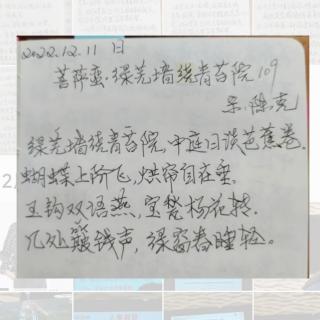 2022.12.11 日
菩萨蛮·绿芜墙绕青苔院 109
宋.陈克
绿芜墙绕青苔院,中庭日淡芭蕉卷.
蝴蝶上阶飞,烘帘自在垂.
玉钩双语燕,宝甃杨花转.
几处簸钱声,绿窗春睡轻。